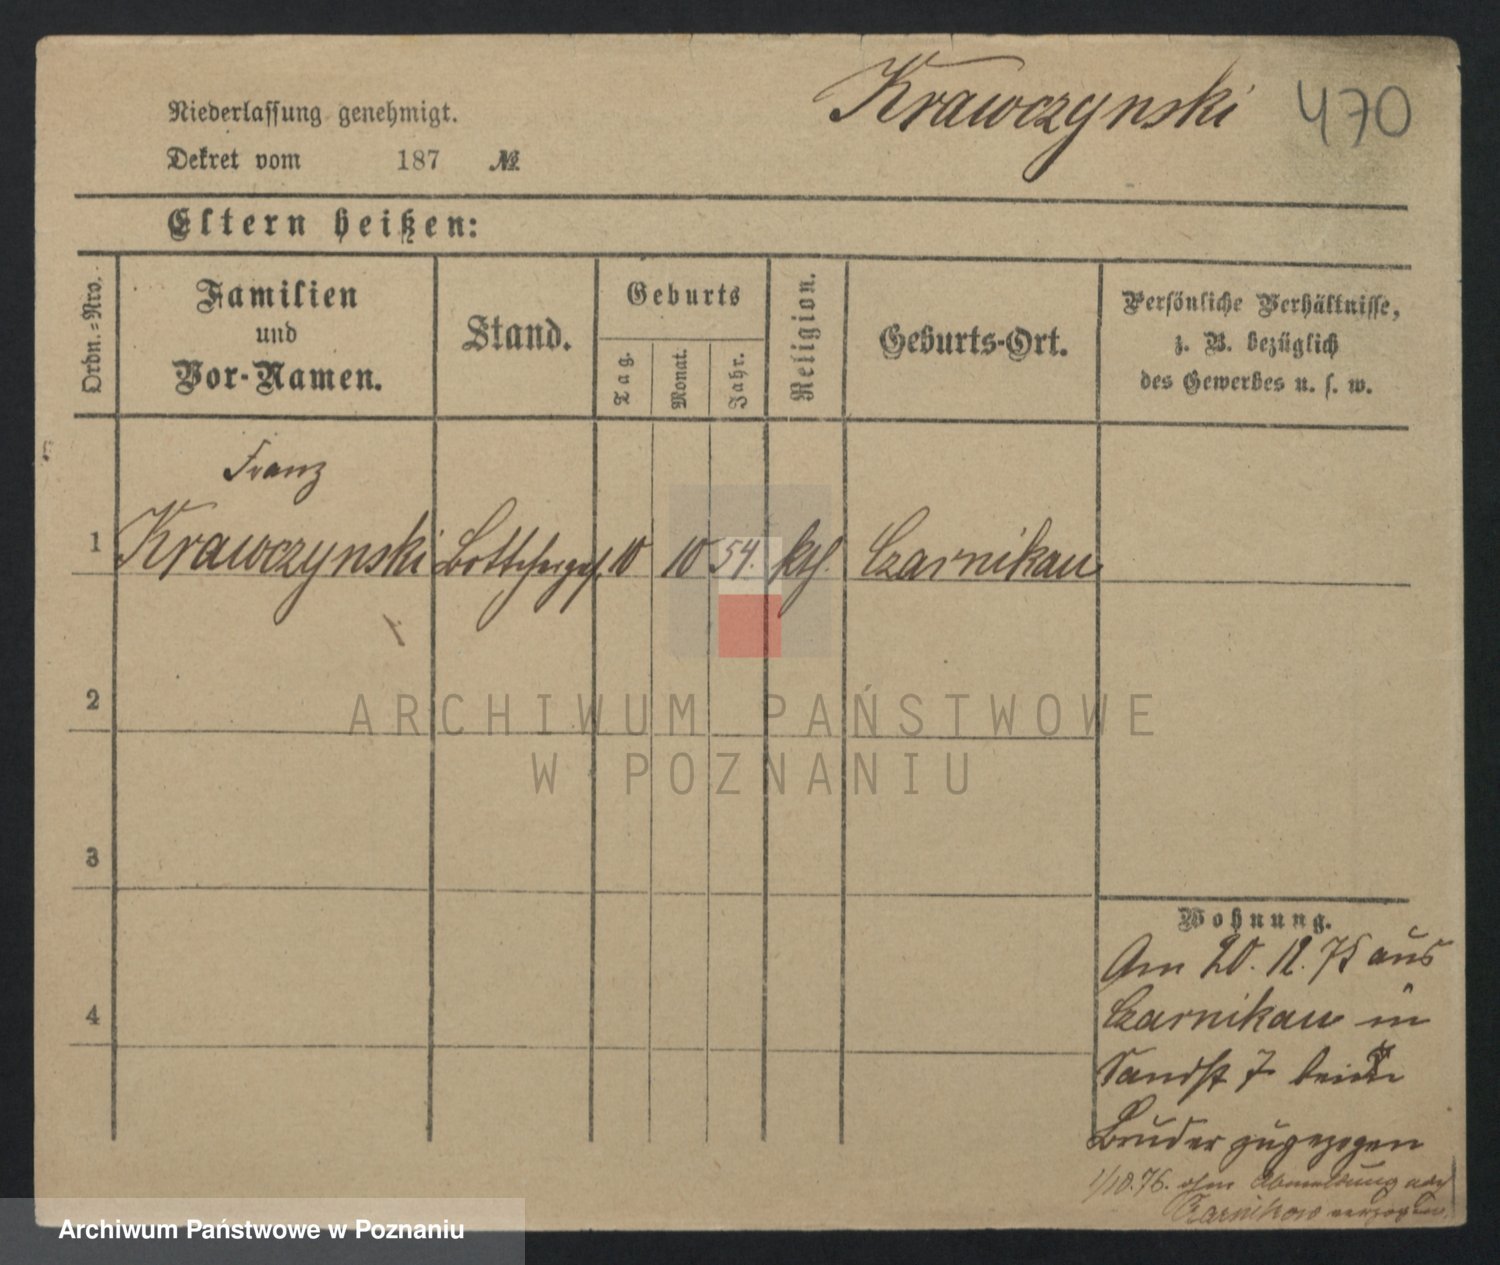 Krawczynski 470
Niederlassung genehmigt.
Dekret vom 187 №
Eltern heißen:
Ordn.-Nro.
Familien
und
Vor-Namen.
Stand.
Geburts
Tag.
Monat.
Jahr.
Religion.
Geburts-Ort.
Persönliche Verhältnisse,
z. B. bezüglich
des Gewerbes u. s. w.
Franz
1 Krawczynski Böttcherges. 10 10 54. kth. Czarnikau
2
3
4
Wohnung.
Am 20. 12. 75 aus
Czarnikau in
Sandst 7 beim
Bruder zugezogen
1/10.76. ohne Abmeldung nach
Czarnikow verzogen.
ARCHIWUM PAŃSTWOWE
W POZNANIU
Archiwum Państwowe w Poznaniu